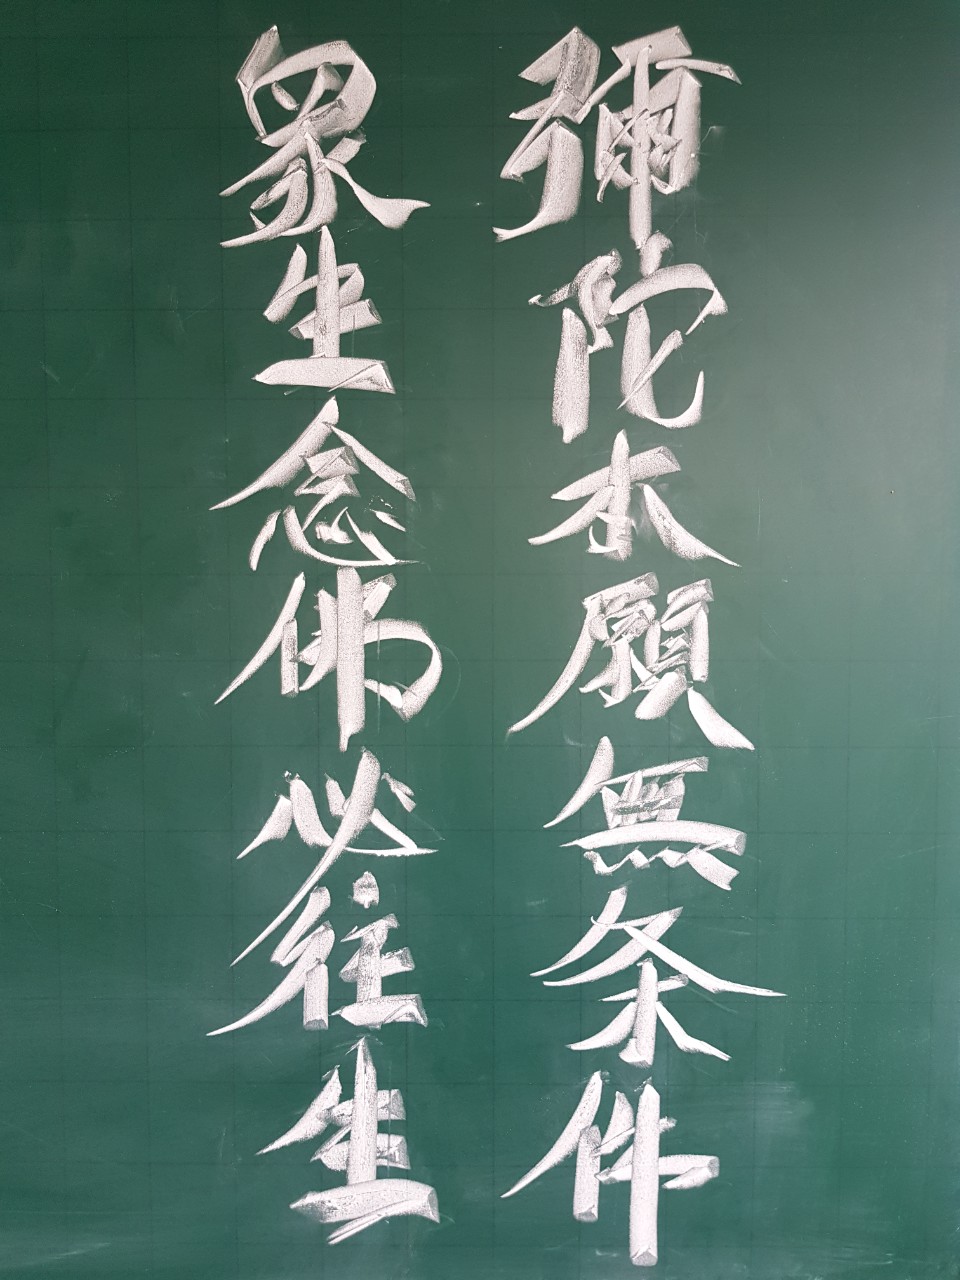 彌陀本願無条件
衆生念佛必往生